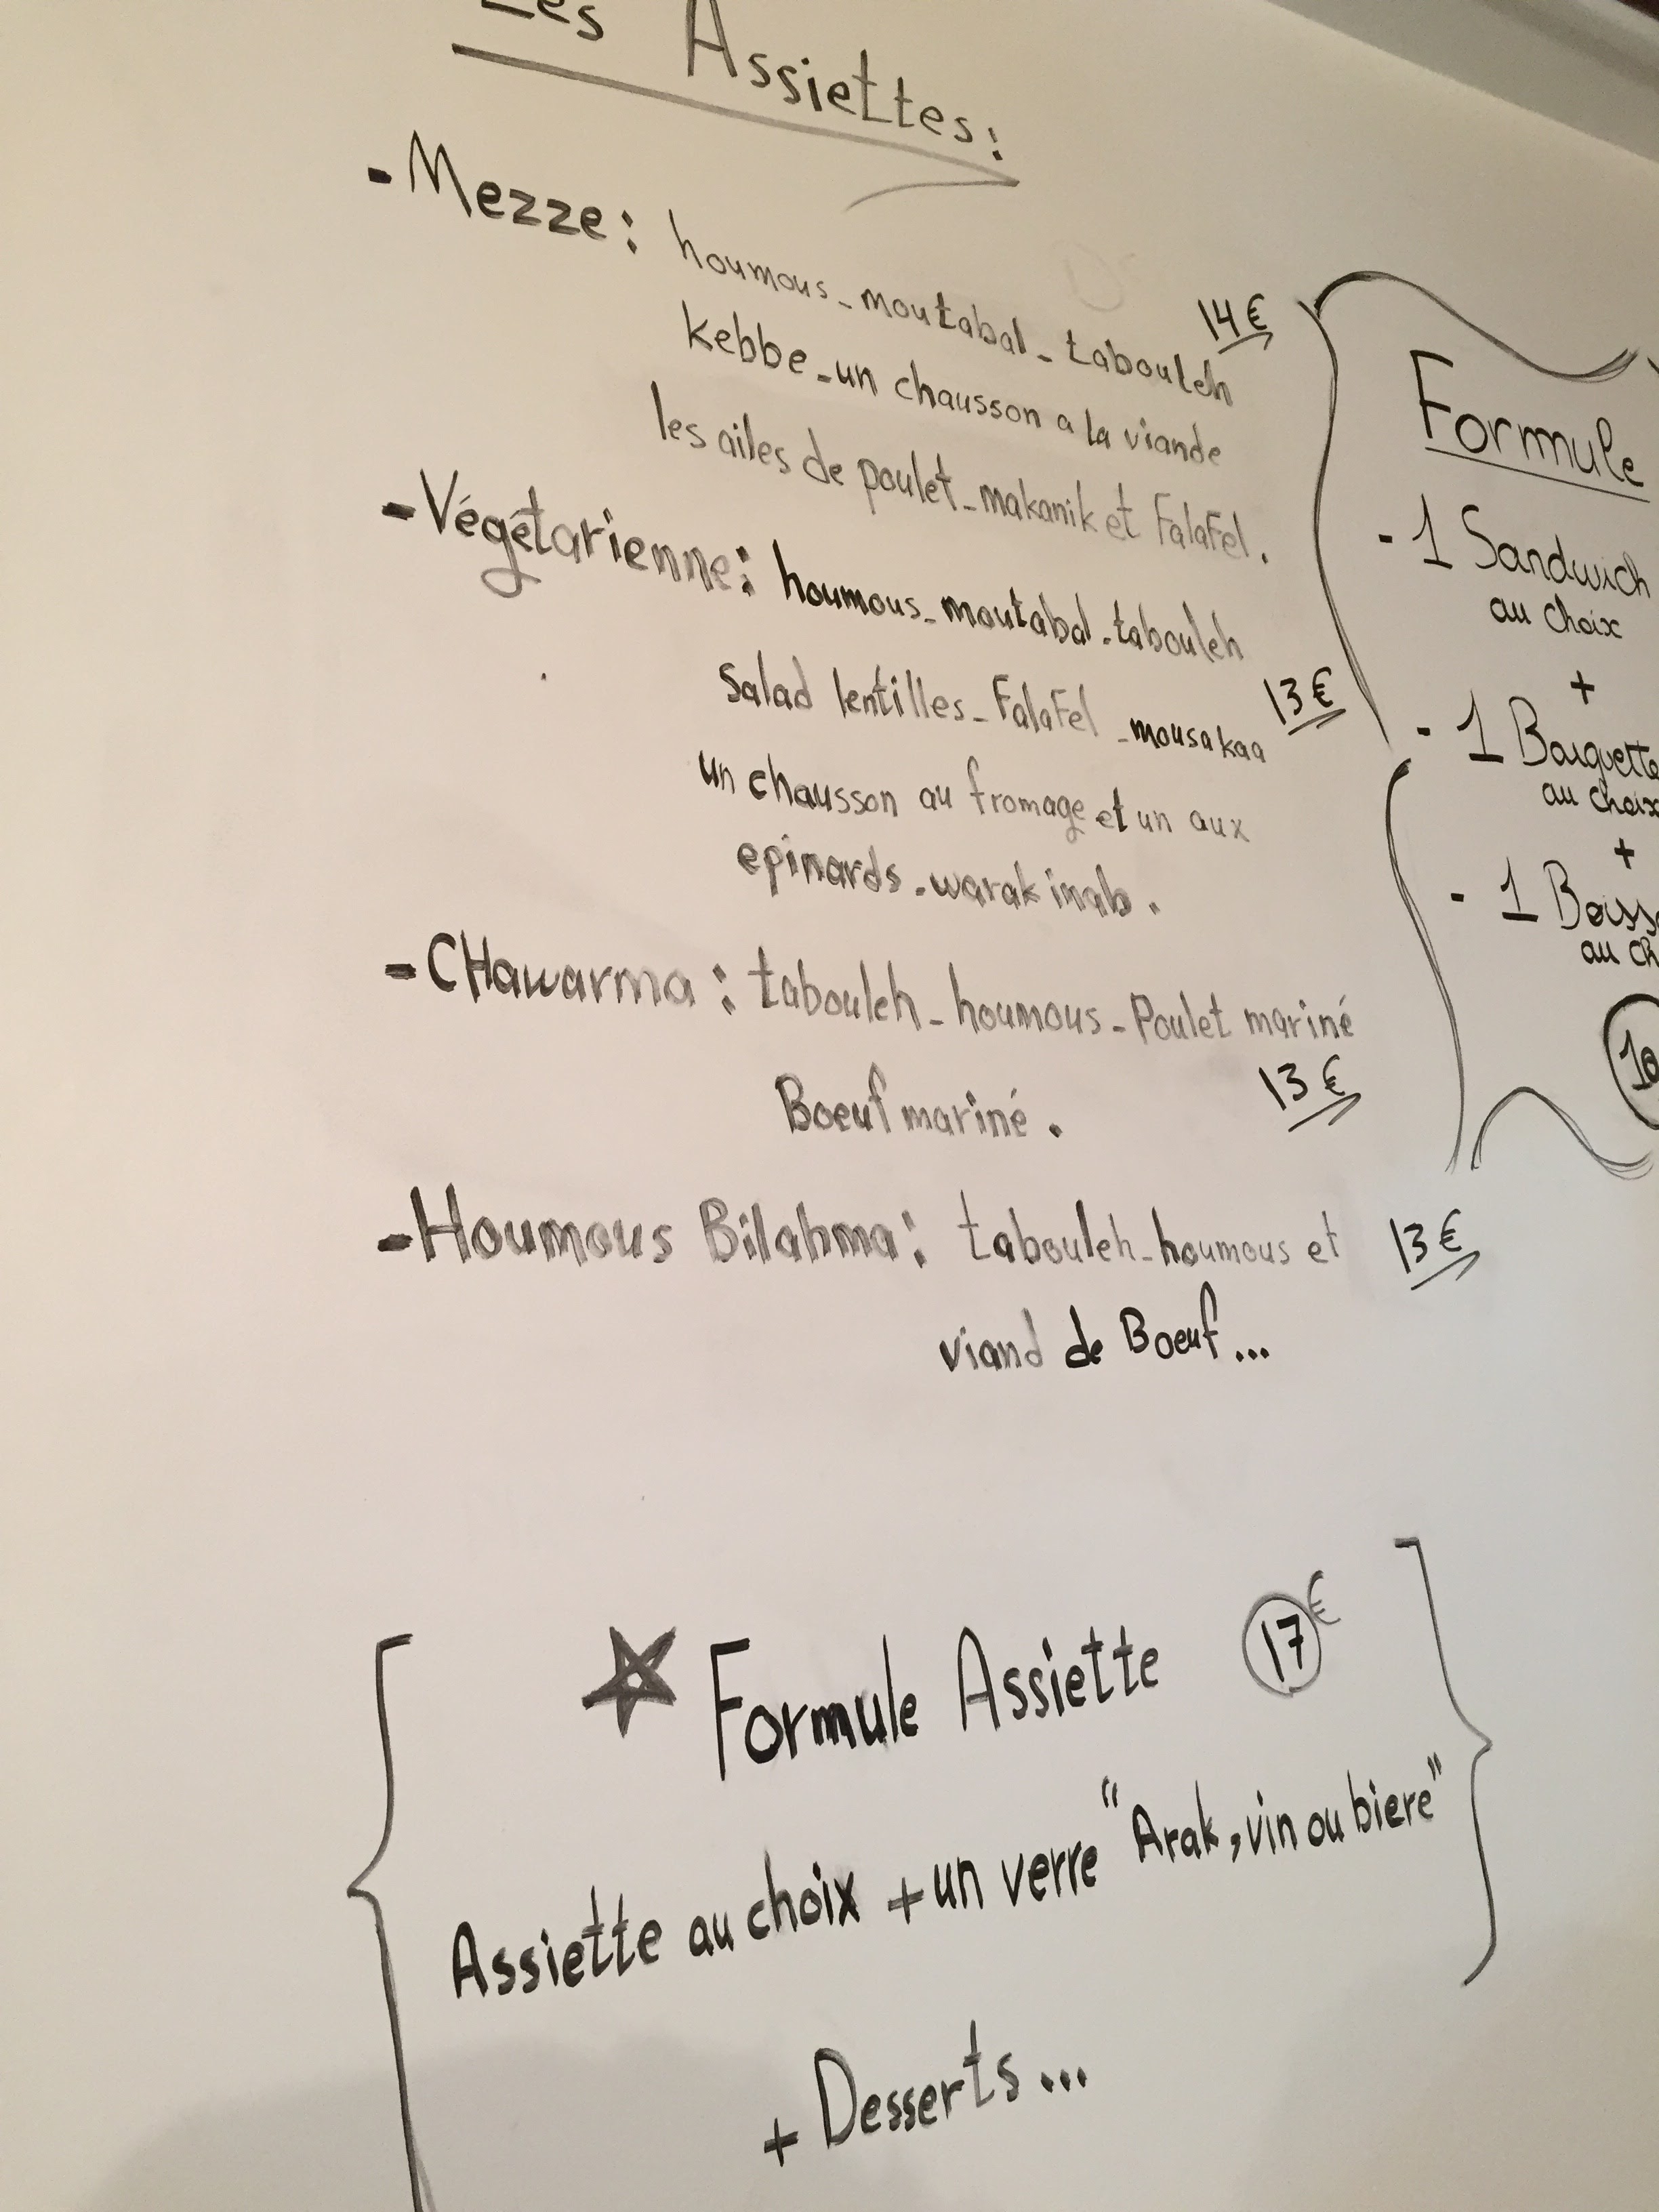 Les Assiettes:
- Mezze: houmous - moutabal - tabouleh 14€
kebbe - un chausson a la viande
les ailes de poulet - makanik et Falafel.
- Végétarienne: houmous - moutabal - tabouleh
Salad lentilles - Falafel - mousakaa 13€
un chausson au fromage et un aux
epinards - warak inab.
- CHawarma: tabouleh - houmous - Poulet mariné
Boeuf mariné. 13€
- Houmous Bilahma: tabouleh - houmous et 13€
viand de Boeuf...
Formule
- 1 Sandwich
au choix
+
- 1
au choix
+
- 1
au
10
Formule Assiette 17€
Assiette au choix + un verre "Arak, vin ou biere"
+ Desserts...